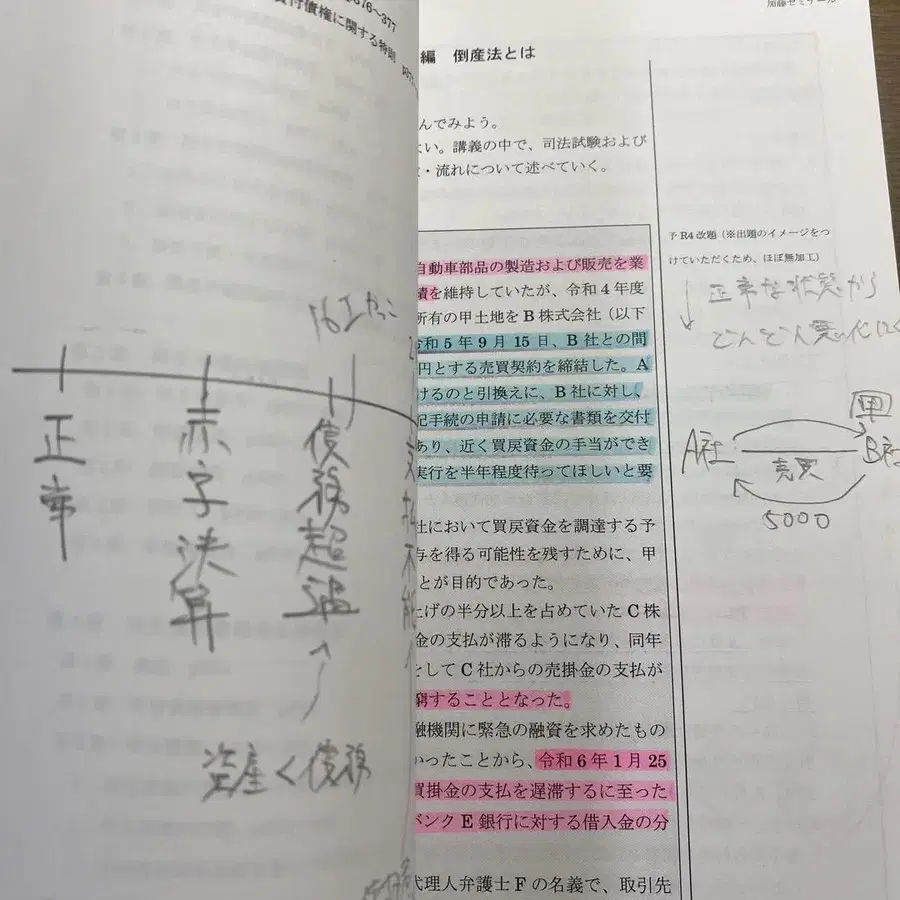 376～377
付債権に関する特則
正常
赤字決算
債務超過
支払不能
資産＜債務
加藤ゼミナール
編 倒産法とは
んでみよう。
よい。講義の中で、司法試験および
・流れについて述べていく。
自動車部品の製造および販売を業
績を維持していたが、令和4年度
所有の甲土地をB株式会社（以下
令和5年9月15日、B社との間
円とする売買契約を締結した。A
けるのと引換えに、B社に対し、
記手続の申請に必要な書類を交付
あり、近く買戻資金の手当ができ
実行を半年程度待ってほしいと要
社において買戻資金を調達する予
与を得る可能性を残すために、甲
ことが目的であった。
上げの半分以上を占めていたC株
金の支払が滞るようになり、同年
をしてC社からの売掛金の支払が
窮することとなった。
融機関に緊急の融資を求めたもの
かったことから、令和6年1月25
買掛金の支払を遅滞するに至った
バンクE銀行に対する借入金の分
代理人弁護士Fの名義で、取引先
予R4改題（※出題のイメージをつ
けていただくため、ほぼ無加工）
正常な状態から
どんどん悪化
甲
A社
売買
B社
5000